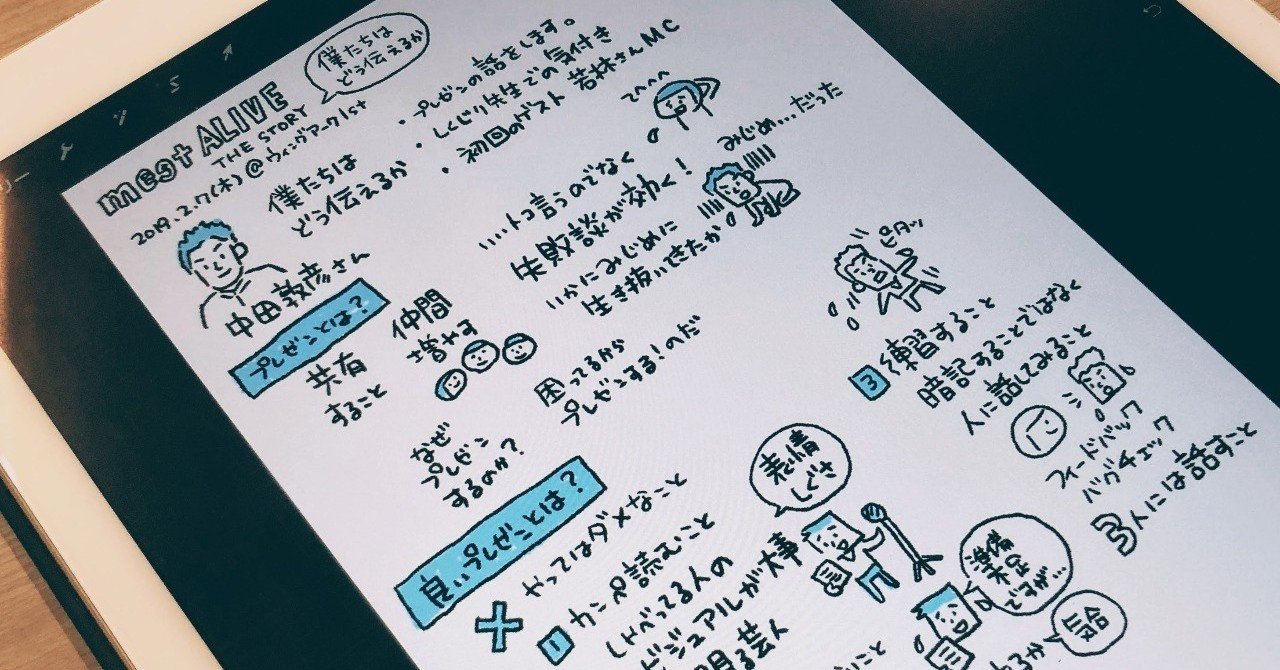 meet ALIVE
THE STORY
2019.2.7(木)@ウィングアーク1st
僕たちは
どう伝えるか
中田敦彦さん
僕たちは
どう伝えるか
・プレゼンの話をします。
・しくじり先生での気付き
・初回のゲスト 若林さんMC
てへへ
プレゼンとは?
共有
すること
仲間
増やす
なぜ
プレゼン
するのか?
困ってるから
プレゼンする!のだ
いいトコ言うのでなく
失敗談が効く!
いかにみじめに
生き抜いてきたか
みじめ...だった
良いプレゼンとは?
やってはダメなこと
1 カンペ読むこと
しゃべってる人の
ビジュアルが大事
芸人
表情
しぐさ
ピタッ
3 練習すること
暗記することではなく
人に話してみること
フィードバック
バグチェック
3人には話すこと
準備
不足
ですが...
気合